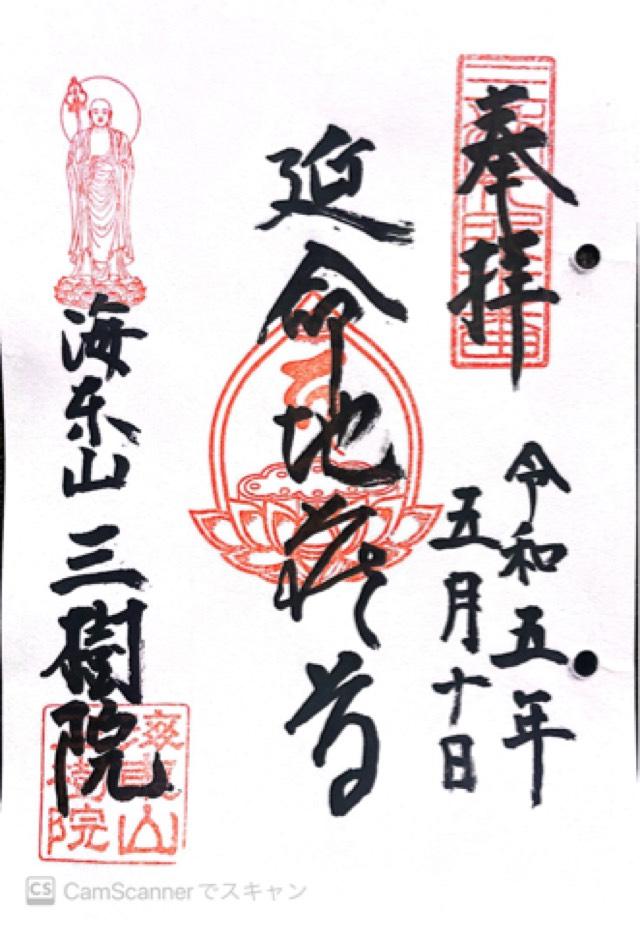 奉拝
令和五年
五月十日
延命地蔵尊
海东山 三樹院
CS CamScannerでスキャン